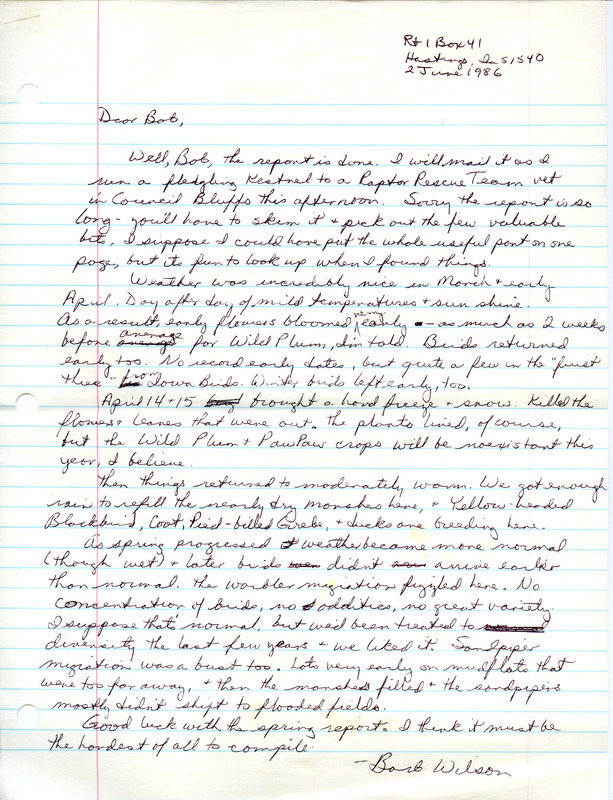 Rt 1 Box 41
Hastings, Ia 51540
2 June 1986
Dear Bob,
Well, Bob, the report is done. I will mail it as I
run a fledgling Kestrel to a Raptor Rescue Team vet
in Council Bluffs this afternoon. Sorry the report is so
long - you'll have to skim it + pick out the few valuable
bits. I suppose I could have put the whole useful part on one
page, but its fun to look up when I found things.
Weather was incredibly nice in March + early
April. Day after day of mild temperatures + sun shine.
As a result, early flowers bloomed very early - as much as 2 weeks
before average for Wild Plum, I'm told. Birds returned
early too. No record early dates, but quite a few in the "first
three" from Iowa Birds. Winter birds left early, too.
April 14 + 15 brought a hard freeze + snow. Killed the
flowers + leaves that were out. The plants lived, of course,
but the Wild Plum + PawPaw crops will be noexistant this
year, I believe.
Then things returned to moderately warm. We got enough
rain to refill the nearly dry marshes here, + Yellow-headed
Blackbird, Coot, Pied-billed Grebe, + ducks are breeding here.
As spring progressed weather became more normal
(though wet) + later birds didn't arrive earlier
than normal. The warbler migration fizzled here. No
concentration of birds, no oddities, no great variety.
I suppose that's normal, but we'd been treated to
diversity the last few years + we liked it. Sandpiper
migration was a bust too. Lots very early on mudflats that
were too far away, + then the marshes filled + the sandpipers
mostly didn't shift to flooded fields.
Good luck with the spring report. I think it must be
the hardest of all to compile.
- Barb Wilson